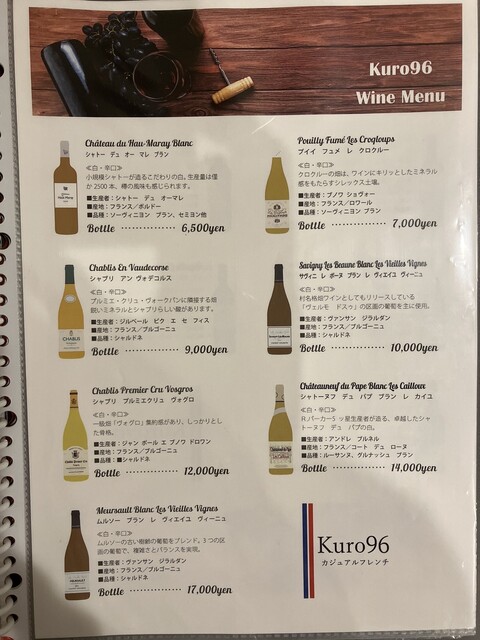 Kuro96
Wine Menu
Château du Hau-Maray Blanc
シャトー デュ オー マレ ブラン
≪白・辛口≫
小規模シャトーが造るこだわりの白。生産量は僅
か2500本。樽の風味も感じられます。
■生産者：シャトー デュ オーマレ
■産地：フランス／ボルドー
■品種：ソーヴィニヨン ブラン、セミヨン他
Bottle ············ 6,500yen
Pouilly Fumé Les Croqloups
プイイ フュメ レ クロクルー
≪白・辛口≫
クロクルーの畑は、ワインにキリッとしたミネラル
感をもたらすシレックス土壌。
■生産者：ブノワ ショヴォー
■産地：フランス／ロワール
■品種：ソーヴィニヨン ブラン
Bottle ············ 7,000yen
Chablis En Vaudecorse
シャブリ アン ヴォデコルス
≪白・辛口≫
プルミエ・クリュ・ヴォークパンに隣接する畑
鋭いミネラルとシャブリらしい酸があります。
■生産者：ジルベール ピク エ セ フィス
■産地：フランス／ブルゴーニュ
■品種：シャルドネ
Bottle ············ 9,000yen
Savigny Les Beaune Blanc Les Vieilles Vignes
サヴィニ レ ボーヌ ブラン レ ヴィエイユ ヴィーニュ
≪白・辛口≫
村名格畑ワインとしてもリリースしている
「ヴェルモ ドスゥ」の区画の葡萄を主に使用。
■生産者：ヴァンサン ジラルダン
■産地：フランス／ブルゴーニュ
■品種：シャルドネ
Bottle ············ 10,000yen
Chablis Premier Cru Vosgros
シャブリ プルミエクリュ ヴォグロ
≪白・辛口≫
一級畑「ヴォグロ」集約感があり、しっかりとし
た骨格。
■生産者：ジャン ポール エ ブノワ ドロワン
■産地：フランス／ブルゴーニュ
■品種：■シャルドネ
Bottle ············ 12,000yen
Châteauneuf du Pape Blanc Les Cailloux
シャトーヌフ デュ パプ ブラン レ カイユ
≪白・辛口≫
R.パーカー5ッ星生産者が造る、卓越したシャ
トーヌフ デュ パプの白。
■生産者：アンドレ ブルネル
■産地：フランス／コート デュ ローヌ
■品種：ルーサンヌ、グルナッシュ ブラン
Bottle ············ 14,000yen
Meursault Blanc Les Vieilles Vignes
ムルソー ブラン レ ヴィエイユ ヴィーニュ
≪白・辛口≫
ムルソーの古い樹齢の葡萄をブレンド。3つの区
画の葡萄で、複雑さとバランスを実現。
■生産者：ヴァンサン ジラルダン
■産地：フランス／ブルゴーニュ
■品種：シャルドネ
Bottle ············ 17,000yen
Kuro96
カジュアルフレンチ
CHABLIS